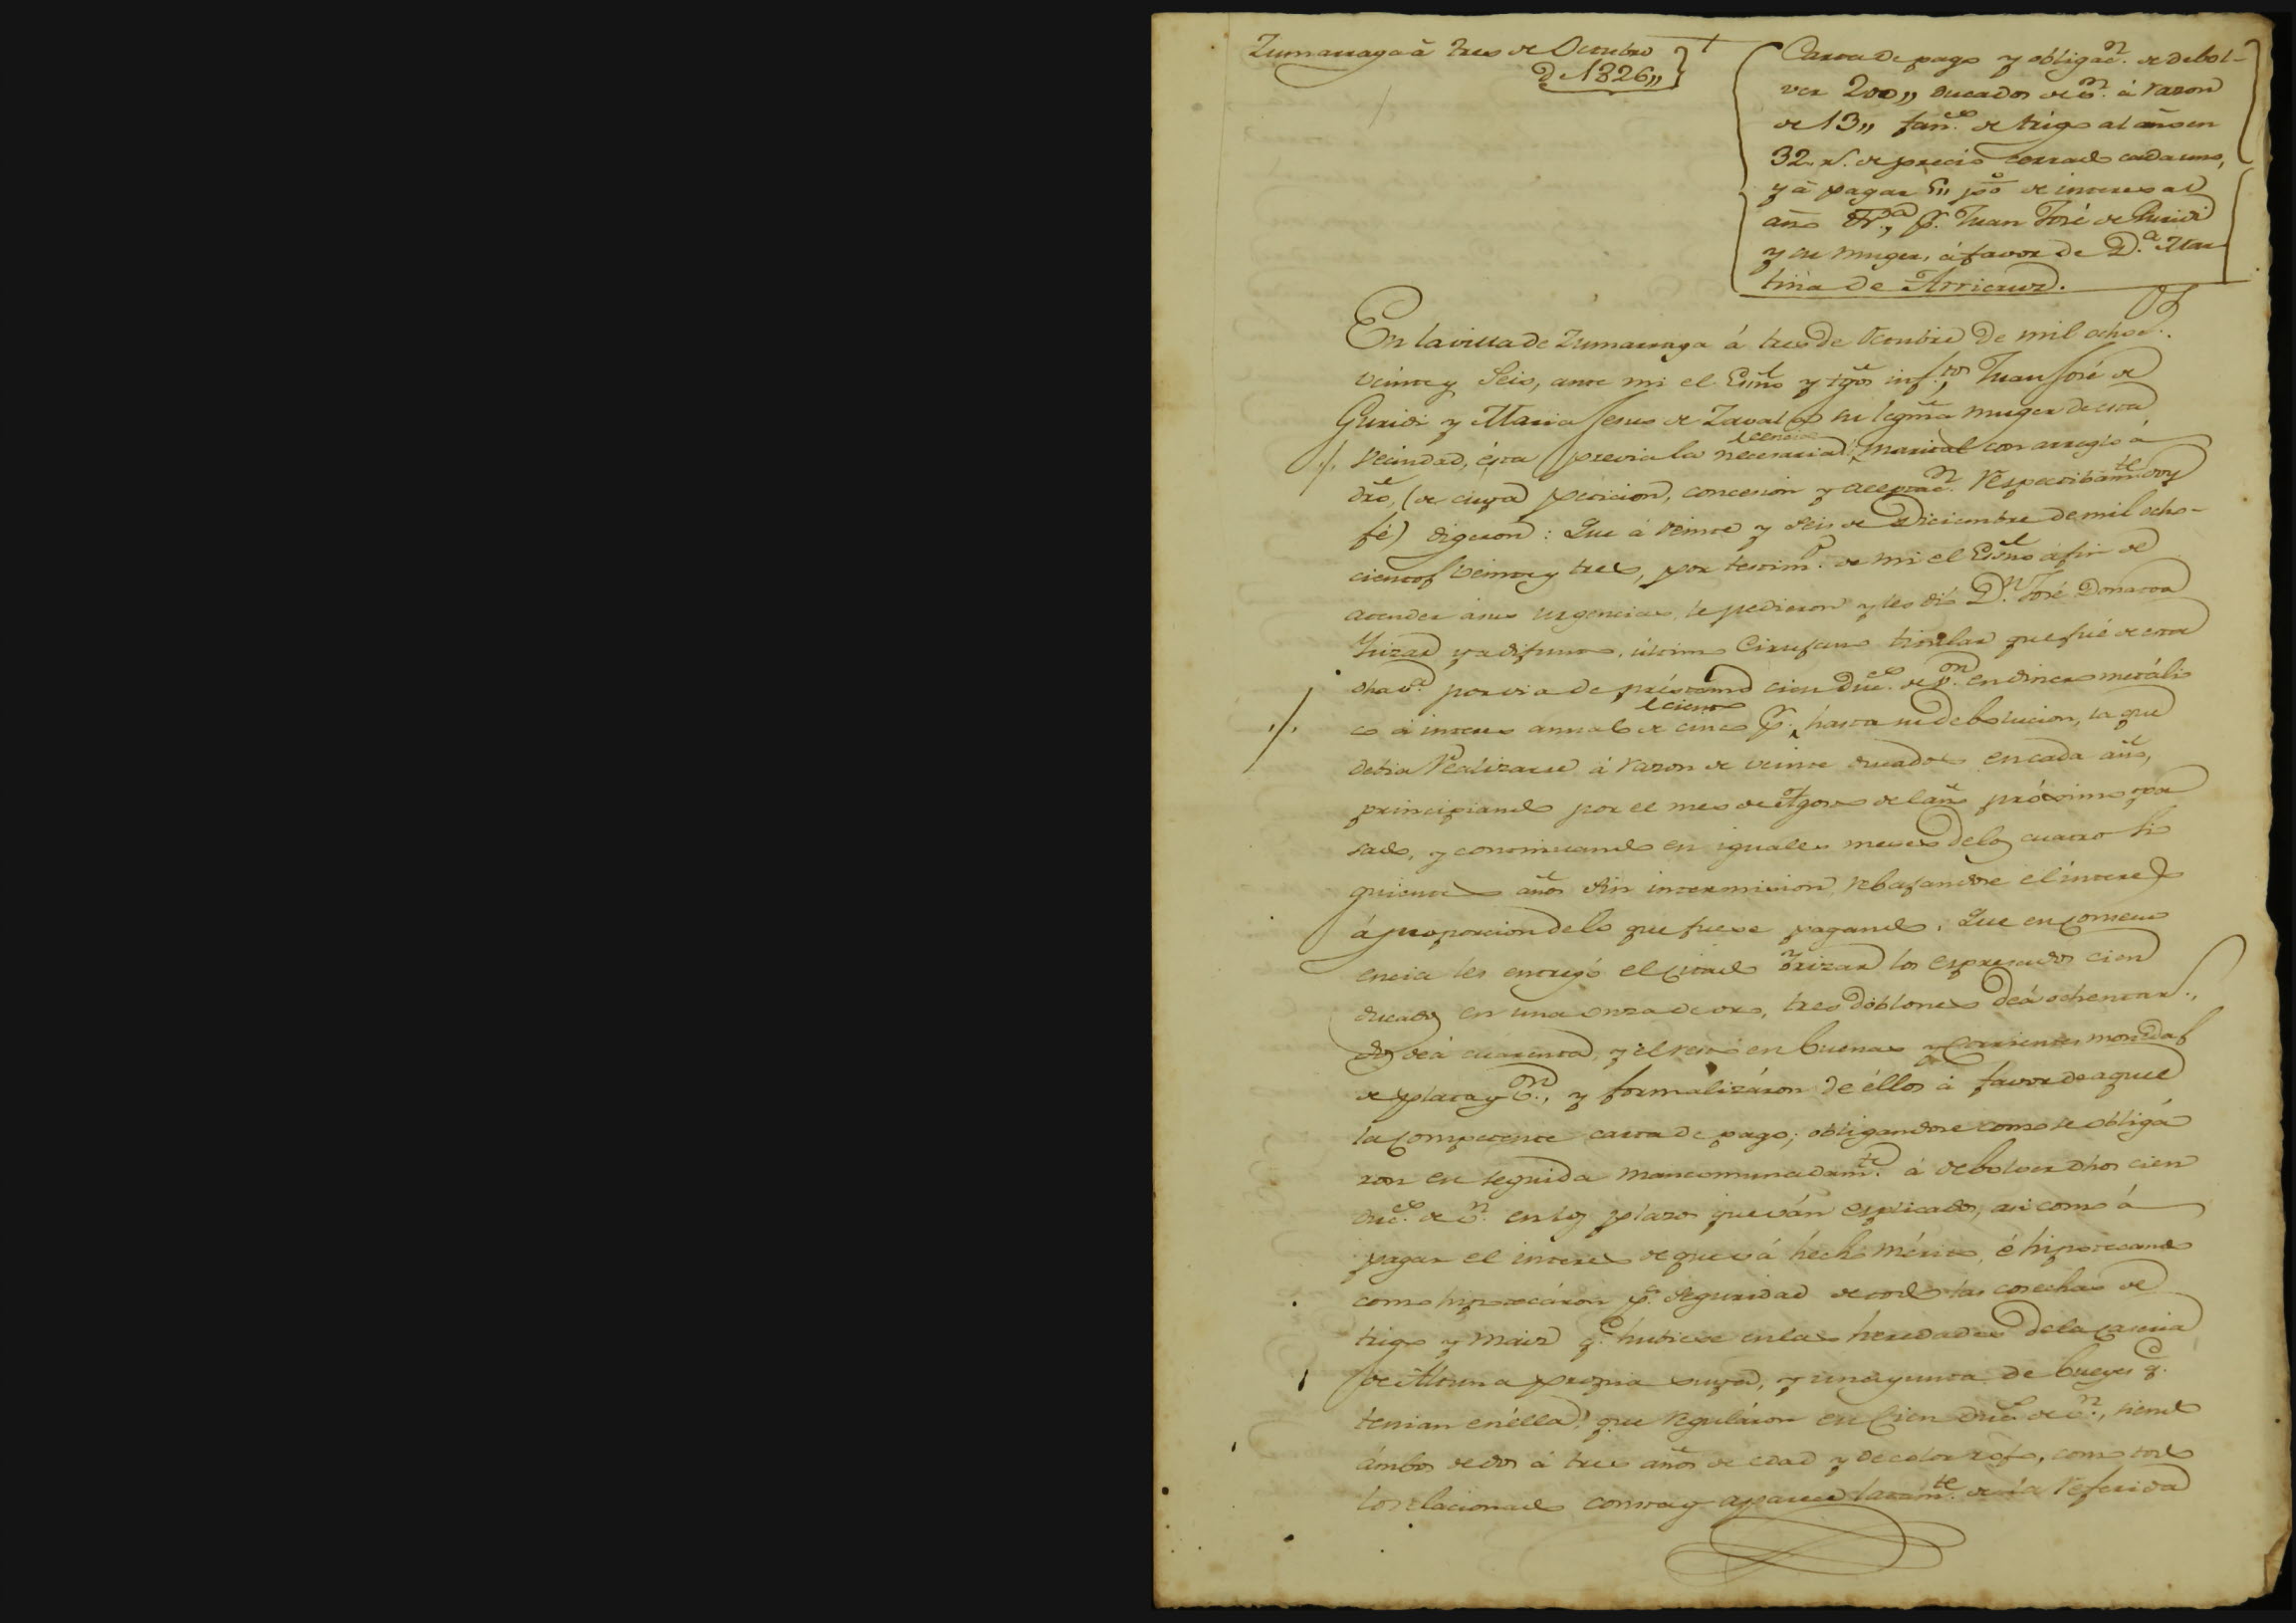 Zumarraga à tres de Octubre
de 1826,,
Carta de pago y obligac.n de debol-
ver 200,, ducados de v.n à razon
de 13,, fan.s de trigo al año en
32 r.s de precio cerrado cada una,
y à pagar 5,, p.o de interes al
año &.a, p.r Juan José de Guridi
y su muger, à favor de D.a Mar-
tina de Arricruz.
En la villa de Zumarraga á tres de Octubre de mil ochoc.s
veinte y seis, ante mi el Esño y tgos inf.tos Juan José de
Guridi y Maria Jesus de Zavalo su legma muger de esta
vecindad, ésta previa la necesaria licencia marital con arreglo à
dro, (de cuya peticion, concesion y aceptac.n respectibamte doy
fé) digeron: Que à veinte y seis de Diciembre de mil ocho-
cientos veinte y tres, por testim.o de mi el Esño à fin de
atender à sus urgencias, le pidieron y les dió D.n José Donator
Yrizar ya difunto, último Cirujano titular que fué de esta
dha v.a por via de préstamo cien duc.s de v.on en dinero metáli
co à interes annual de cinco p.r ciento hasta su debolucion, la que
debia realizarse à razon de veinte ducados en cada año,
principiando por el mes de Agosto del año próximo pa
sado, y continuando en iguales meses de los cuatro si
guientes años sin intermision, rebajandose el interes
á proporcion de lo que fuese pagando. Que en consecu
encia les entregó el citado Yrizar los espresados cien
ducados en una onza de oro, tres doblones de à ochenta r.s,
dos de à cuarenta, y el resto en buenas y corrientes monedas
de plata y v.on, y formalizáron de éllos à favor de aquel
la competente carta de pago; obligandose como se obligá
ron en seguida mancomunadam.te à debolver dhos cien
duc.s de v.n en los plazos que ván esplicados, asi como á
pagar el interes de que vá hecho mérito, é hipotecando
como hipotecáron p.a seguridad de todo las cosechas de
trigo y maiz q.e hubiese en las heredades de la caseria
de Altuna propia suya, y una yunta de bueyes q.e
tenian en élla, que reguláron en cien duc.s de v.n, siendo
ámbos de dos à tres años de edad y de color rojo, como todo
lo relacionado consta y aparece laram.te de la referida